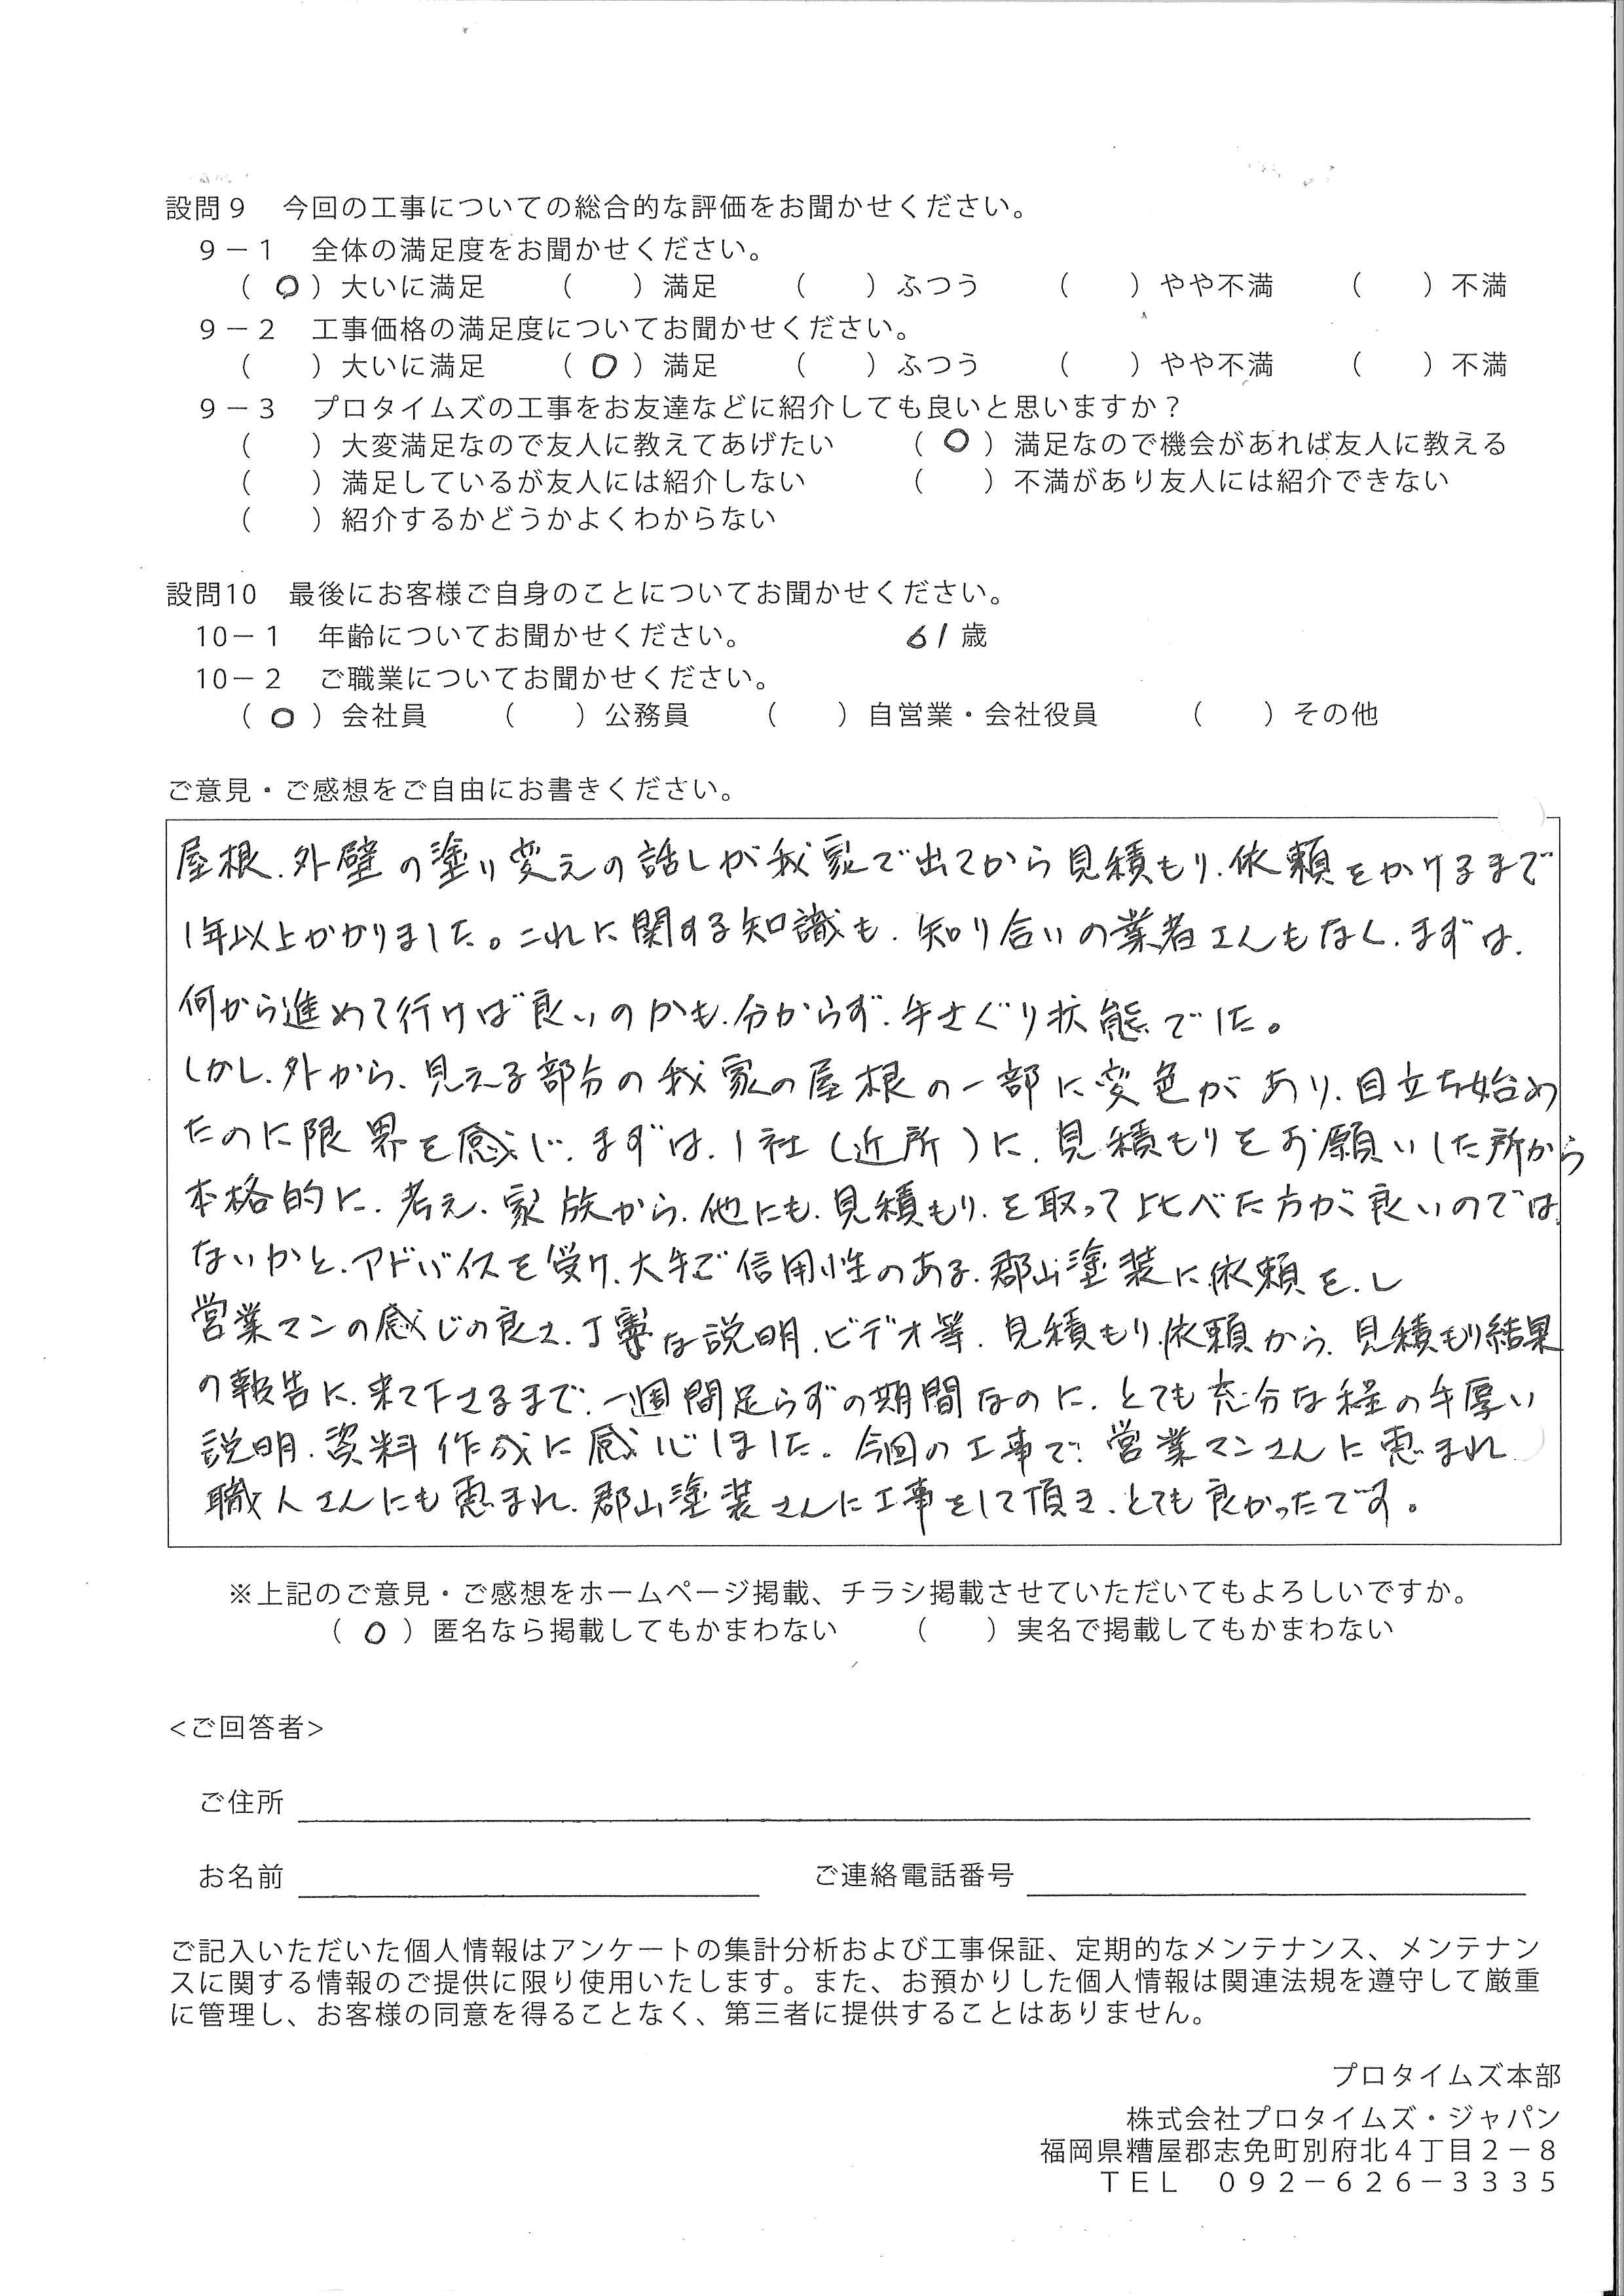 設問９　今回の工事についての総合的な評価をお聞かせください。
９－１　全体の満足度をお聞かせください。
（ ○ ）大いに満足　（　　）満足　（　　）ふつう　（　　）やや不満　（　　）不満
９－２　工事価格の満足度についてお聞かせください。
（　　）大いに満足　（ ○ ）満足　（　　）ふつう　（　　）やや不満　（　　）不満
９－３　プロタイムズの工事をお友達などに紹介しても良いと思いますか？
（　　）大変満足なので友人に教えてあげたい　（ ○ ）満足なので機会があれば友人に教える
（　　）満足しているが友人には紹介しない　（　　）不満があり友人には紹介できない
（　　）紹介するかどうかよくわからない
設問10　最後にお客様ご自身のことについてお聞かせください。
10－１　年齢についてお聞かせください。　61歳
10－２　ご職業についてお聞かせください。
（ ○ ）会社員　（　　）公務員　（　　）自営業・会社役員　（　　）その他
ご意見・ご感想をご自由にお書きください。
屋根、外壁の塗り変えの話しが我家で出てから見積もり、依頼をかけるまで
1年以上かかりました。これに関する知識も、知り合いの業者さんもなく、まずは、
何から進めて行けば良いのかも、分からず、手さぐり状態でした。
しかし、外から、見える部分の我家の屋根の一部に変色があり、目立ち始め
たのに限界を感じ、まずは、1社（近所）に、見積もりをお願いした所から
本格的に、考え、家族から、他にも、見積もり、を取って比べた方が良いのでは、
ないかと、アドバイスを受け、大手で信用性のある、郡山塗装に依頼を、し
営業マンの感じの良さ、丁寧な説明、ビデオ等、見積もり、依頼から、見積もり結果
の報告に、来て下さるまで、一週間足らずの期間なのに、とても充分な程の手厚い
説明、資料作成に感心しました。今回の工事で、営業マンさんに恵まれ、
職人さんにも恵まれ、郡山塗装さんに工事をして頂き、とても良かったです。
※上記のご意見・ご感想をホームページ掲載、チラシ掲載させていただいてもよろしいですか。
（ ○ ）匿名なら掲載してもかまわない　（　　）実名で掲載してもかまわない
<ご回答者>
ご住所
お名前　ご連絡電話番号
ご記入いただいた個人情報はアンケートの集計分析および工事保証、定期的なメンテナンス、メンテナン
スに関する情報のご提供に限り使用いたします。また、お預かりした個人情報は関連法規を遵守して厳重
に管理し、お客様の同意を得ることなく、第三者に提供することはありません。
プロタイムズ本部
株式会社プロタイムズ・ジャパン
福岡県糟屋郡志免町別府北４丁目２－８
ＴＥＬ　０９２－６２６－３３３５